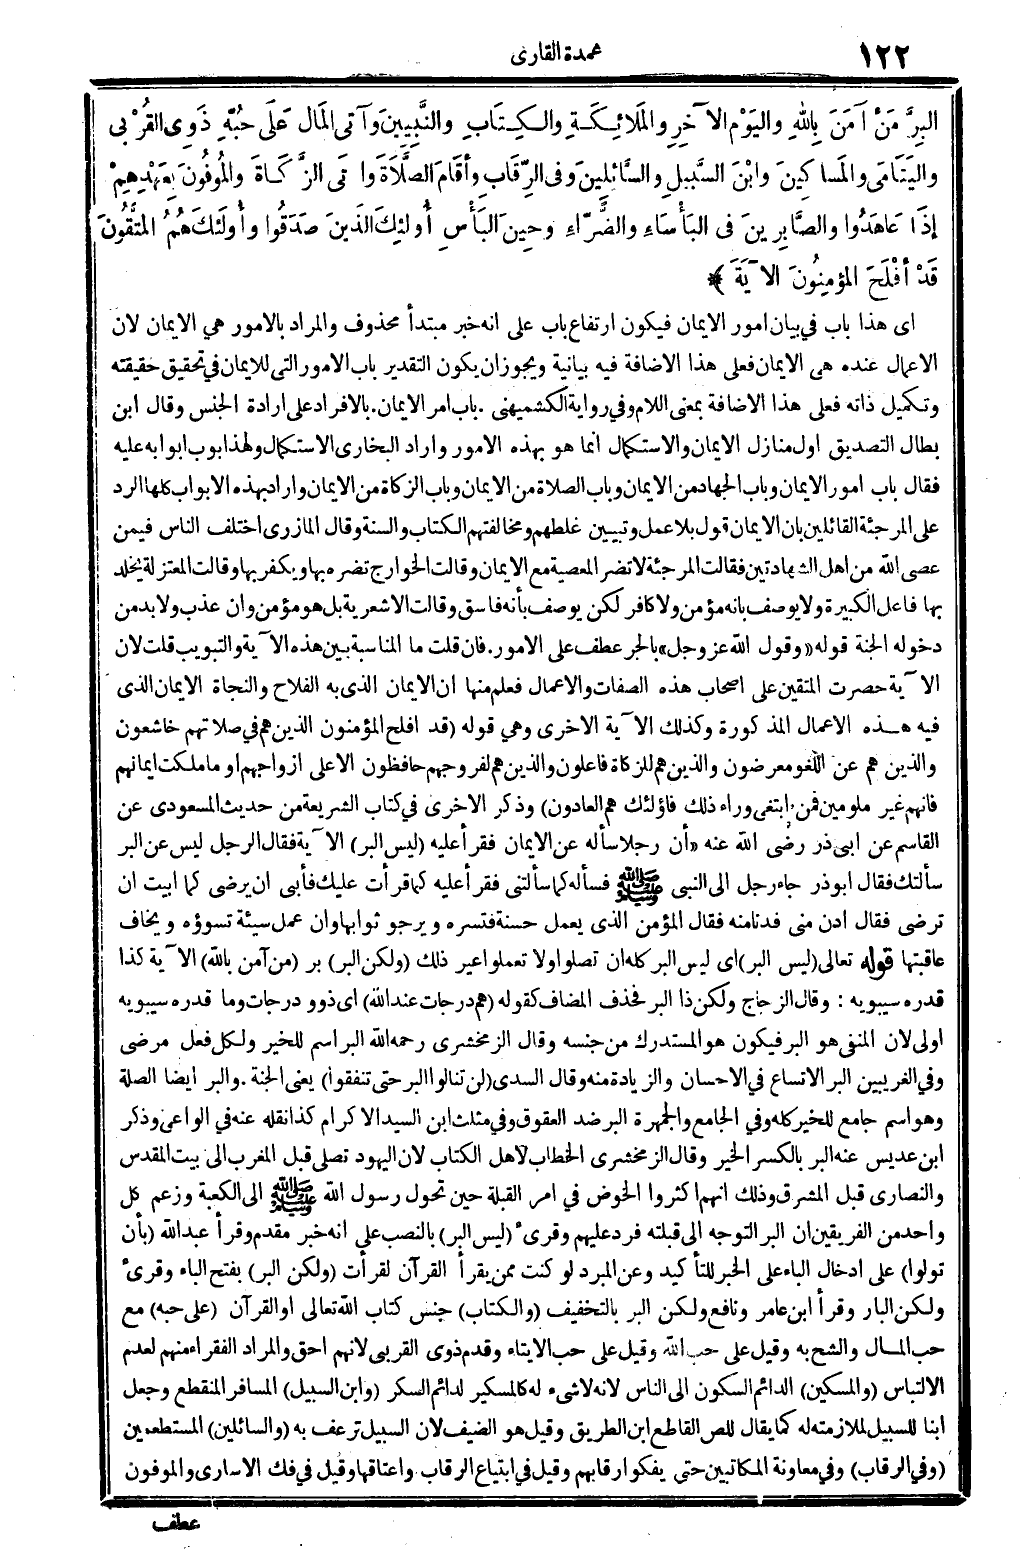 ١٢٢
عمدة القارى
البِرَّ مَنْ آمَنَ بِاللهِ واليَوْمِ الآخِرِ والمَلَائِكَةِ والكِتَابِ والنَّبِيينَ وَآتى المَالَ عَلَى حُبِّهِ ذَوِي القُرْبى
واليَتَامَى والمَساكِينَ وابْنَ السَّبِيلِ والسَّائِلِينَ وفى الرِّقَابِ وأقَامَ الصَّلَاةَ وآتى الزَّكَاةَ والمُوفُونَ بِعَهْدِهِمْ
إذَا عَاهَدُوا والصَّابِرِينَ فى البَأْسَاءِ والضَّرَّاءِ وحِينَ البَأْسِ أُولئِكَ الَّذِينَ صَدَقُوا وأُولَئكَ هُمُ المُتَّقُونَ
قَدْ أفْلَحَ المؤْمِنُونَ الآيَةَ ﴾
اى هذا باب في بيان امور الايمان فيكون ارتفاع باب على انه خبر مبتدأ محذوف والمراد بالامور هي الايمان لان
الاعمال عنده هى الايمان فعلى هذا الاضافة فيه بيانية ويجوز ان يكون التقدير باب الامور التى للايمان في تحقيق حقيقته
وتكميل ذاته فعلى هذا الاضافة بمعنى اللام وفي رواية الكشميهنى . باب امر الايمان . بالافراد على ارادة الجنس وقال ابن
بطال التصديق اول منازل الايمان والاستكمال انما هو بهذه الامور واراد البخارى الاستكمال ولهذا بوب ابوابه عليه
فقال باب امور الايمان وباب الجهاد من الايمان وباب الصلاة من الايمان وباب الزكاة من الايمان واراد بهذه الابواب كلها الرد
على المرجئة القائلين بان الايمان قول بلا عمل وتبيين غلطهم ومخالفتهم الكتاب والسنة وقال المازرى اختلف الناس فيمن
عصى الله من اهل الشهادتين فقالت المرجئة لا تضر المعصية مع الايمان وقالت الخوارج تضره بها ويكفر بها وقالت المعتزلة يخلد
بها فاعل الكبيرة ولا يوصف بانه مؤمن ولا كافر لكن يوصف بأنه فاسق وقالت الاشعرية بل هو مؤمن وان عذب ولا بد من
دخوله الجنة قوله «وقول الله عز وجل» بالجر عطف على الامور . فان قلت ما المناسبة بين هذه الآية والتبويب قلت لان
الآية حصرت المتقين على اصحاب هذه الصفات والاعمال فعلم منها ان الايمان الذى به الفلاح والنجاة الايمان الذى
فيه هذه الاعمال المذكورة وكذلك الآية الاخرى وهي قوله (قد افلح المؤمنون الذين هم في صلاتهم خاشعون
والذين هم عن اللغو معرضون والذين هم للزكاة فاعلون والذين هم لفروجهم حافظون الا على ازواجهم او ما ملكت ايمانهم
فانهم غير ملومين فمن ابتغى وراء ذلك فاؤلئك هم العادون) وذكر الاخرى في كتاب الشريعة من حديث المسعودى عن
القاسم عن ابى ذر رضى الله عنه «أن رجلا سأله عن الايمان فقرأ عليه (ليس البر) الآية فقال الرجل ليس عن البر
سألتك فقال ابوذر جاء رجل الى النبى ﷺ فسأله كما سألتنى فقرأ عليه كما قرأت عليك فأبى ان يرضى كما ابيت ان
ترضى فقال ادن منى فدنا منه فقال المؤمن الذى يعمل حسنة فتسره ويرجو ثوابها وان عمل سيئة تسوؤه ويخاف
عاقبتها قوله تعالى (ليس البر) اى ليس البر كله ان تصلوا ولا تعملوا غير ذلك (ولكن البر) بر (من آمن بالله) الآية كذا
قدره سيبويه : وقال الزجاج ولكن ذا البر فحذف المضاف كقوله (هم درجات عند الله) اى ذوو درجات وما قدره سيبويه
اولى لان المنفى هو البر فيكون هو المستدرك من جنسه وقال الزمخشرى رحمه الله البر اسم للخير ولكل فعل مرضى
وفي الغريبين البر الاتساع في الاحسان والزيادة منه وقال السدى (لن تنالوا البر حتى تنفقوا) يعنى الجنة . والبر ايضا الصلة
وهو اسم جامع للخير كله وفي الجامع والجمهرة البر ضد العقوق وفي مثلث ابن السيد الاكرام كذا نقله عنه في الواعى وذكر
ابن عديس عنه البر بالكسر الخير وقال الزمخشرى الخطاب لاهل الكتاب لان اليهود تصلى قبل المغرب الى بيت المقدس
والنصارى قبل المشرق وذلك انهم اكثروا الخوض في امر القبلة حين تحول رسول الله ﷺ الى الكعبة وزعم كل
واحد من الفريقين ان البر التوجه الى قبلته فرد عليهم وقرىء (ليس البر) بالنصب على انه خبر مقدم وقرأ عبد الله (بأن
تولوا) على ادخال الباء على الخبر للتأكيد وعن المبرد لو كنت ممن يقرأ القرآن لقرأت (ولكن البر) بفتح الباء وقرىء
ولكن البار وقرأ ابن عامر ونافع ولكن البر بالتخفيف (والكتاب) جنس كتاب الله تعالى او القرآن (على حبه) مع
حب المال والشح به وقيل على حب الله وقيل على حب الايتاء وقدم ذوى القربى لانهم احق والمراد الفقراء منهم لعدم
الالتباس (والمسكين) الدائم السكون الى الناس لانه لاشىء له كالمسكير لدائم السكر (وابن السبيل) المسافر المنقطع وجعل
ابنا للسبيل لملازمته له كما يقال للص القاطع ابن الطريق وقيل هو الضيف لان السبيل ترعف به (والسائلين) المستطعمين
(وفي الرقاب) وفي معاونة المكاتبين حتى يفكوا رقابهم وقيل في ابتياع الرقاب واعتاقها وقيل في فك الاسارى والموفون
عطف